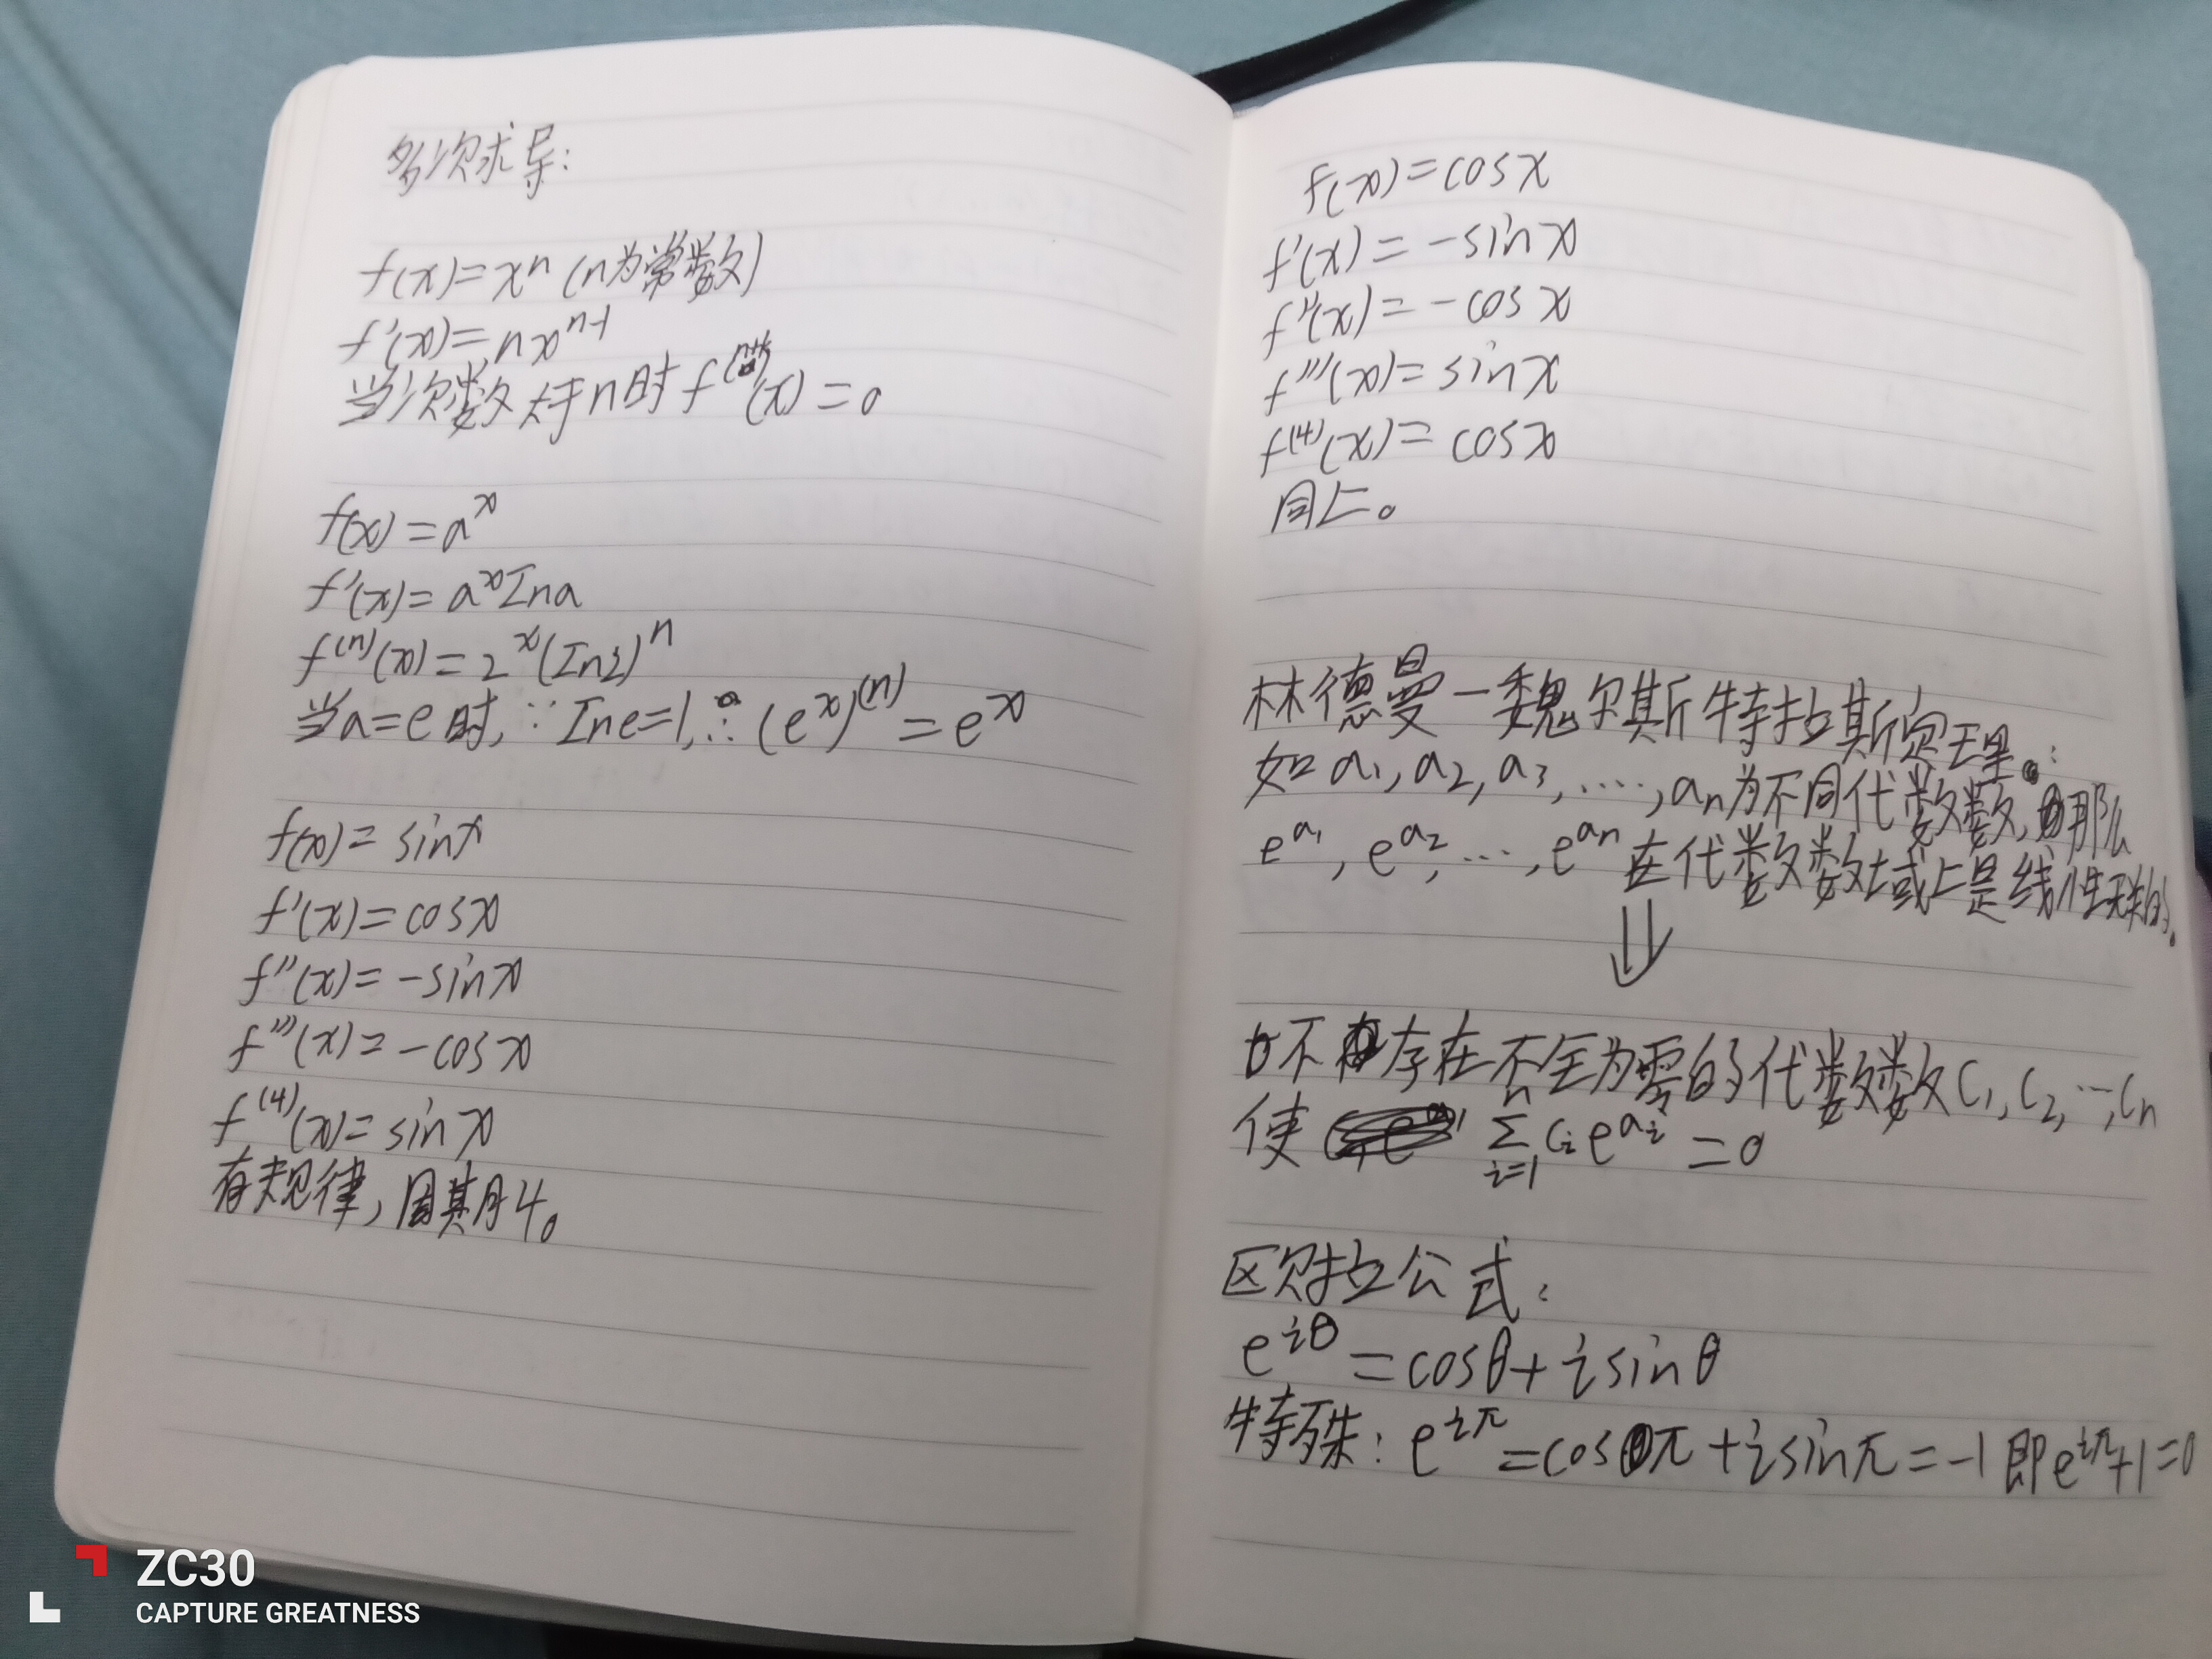 多次求导:
f(x)=xⁿ (n为常数)
f'(x)=nxⁿ⁻¹
当次数大于n时f⁽ⁿ⁺ᵏ⁾(x)=0
f(x)=aˣ
f'(x)=aˣIna
f⁽ⁿ⁾(x)=2ˣ(In2)ⁿ
当a=e时,∵Ine=1,∴(eˣ)⁽ⁿ⁾=eˣ
f(x)=sinx
f'(x)=cosx
f''(x)=-sinx
f'''(x)=-cosx
f⁽⁴⁾(x)=sinx
有规律,周期4。
f(x)=cosx
f'(x)=-sinx
f''(x)=-cosx
f'''(x)=sinx
f⁽⁴⁾(x)=cosx
同上。
林德曼-魏尔斯特拉斯定理:
如a₁,a₂,a₃,....,aₙ为不同代数数,那么
e^a₁,e^a₂,...,e^aₙ在代数数域上是线性无关的。
⇓
不存在不全为零的代数数C₁,C₂,...,Cₙ
使 ∑ᵢ₌₁ⁿ Cᵢe^aᵢ=0
欧拉公式:
e^iθ=cosθ+isinθ
特殊:e^iπ=cosπ+isinπ=-1即e^iπ+1=0
ZC30
CAPTURE GREATNESS